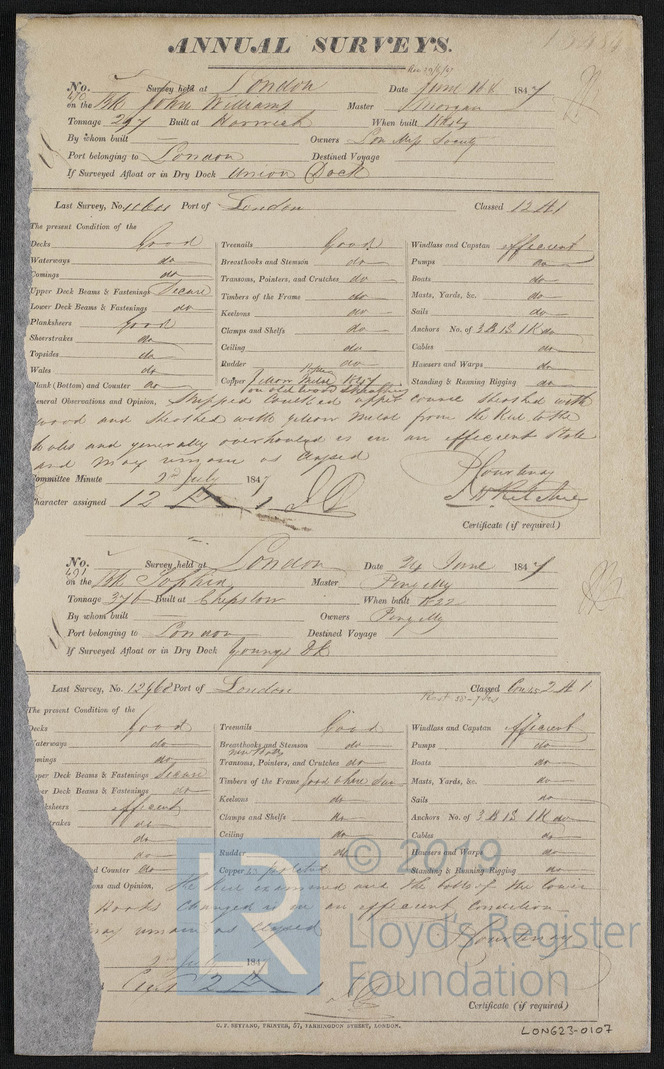 ANNUAL SURVEYS.
No. 490 Survey held at London Date June 16th 1847
on the Bk John Williams Master Morgan
Tonnage 297 Built at Harwich When built
By whom built — Owners Lon Miss Society
Port belonging to London Destined Voyage
If Surveyed Afloat or in Dry Dock Union Dock
Last Survey, No. Port of London Classed 12 A1
The present Condition of the
Decks Good Treenails Good Windlass and Capstan efficient
Waterways do Breasthooks and Stemson do Pumps do
Comings do Transoms, Pointers, and Crutches do Boats do
Upper Deck Beams & Fastenings Secure Timbers of the Frame do Masts, Yards, &c. do
Lower Deck Beams & Fastenings do Keelsons do Sails do
Planksheers good Clamps and Shelfs do Anchors No. of 3 B 1 S 1 K do
Sheerstrakes do Ceiling do Cables do
Topsides do Rudder do Hawsers and Warps do
Wales do Copper Yellow Metal 1847 Standing & Running Rigging do
Plank (Bottom) and Counter do on old wood sheathing
eneral Observations and Opinion, Stripped caulked upper course sheathed with
wood and sheathed with yellow metal from the Keel to the
Wales and generally overhauled is in an efficient state
and may remain as classed
P Courtenay
Committee Minute 2d July 1847
Character assigned 12 A 1
Certificate (if required)
No. 491 Survey held at London Date 24 June 1847
on the Bk Sophia Master Pengelly
Tonnage 376 Built at Chepstow When built 1822
By whom built Owners Pengelly
Port belonging to London Destined Voyage
If Surveyed Afloat or in Dry Dock Youngs Dk
Last Survey, No. 12960 Port of London Classed Cont 2 A 1
The present Condition of the
Decks Good Treenails Good Windlass and Capstan efficient
Waterways do Breasthooks and Stemson do Pumps do
omings do Transoms, Pointers, and Crutches do Boats do
pper Deck Beams & Fastenings Secure Timbers of the Frame good where seen Masts, Yards, &c. do
er Deck Beams & Fastenings do Keelsons do Sails do
ksheers efficient Clamps and Shelfs do Anchors No. of 3 B 1 S 1 K do
trakes do Ceiling do Cables do
do Rudder do Hawsers and Warps do
do Copper Standing & Running Rigging do
d Counter do
ons and Opinion, The Keel examined and the bolts of the lower
Hooks changed is in an efficient condition
may remain as classed
P Courtenay
2d July 1847
Cont 2 A 1
Certificate (if required)
C. F. SEYFANG, PRINTER, 57, FARRINGDON STREET, LONDON.
LON623-0107
LR © 2019
Lloyd's Register
Foundation